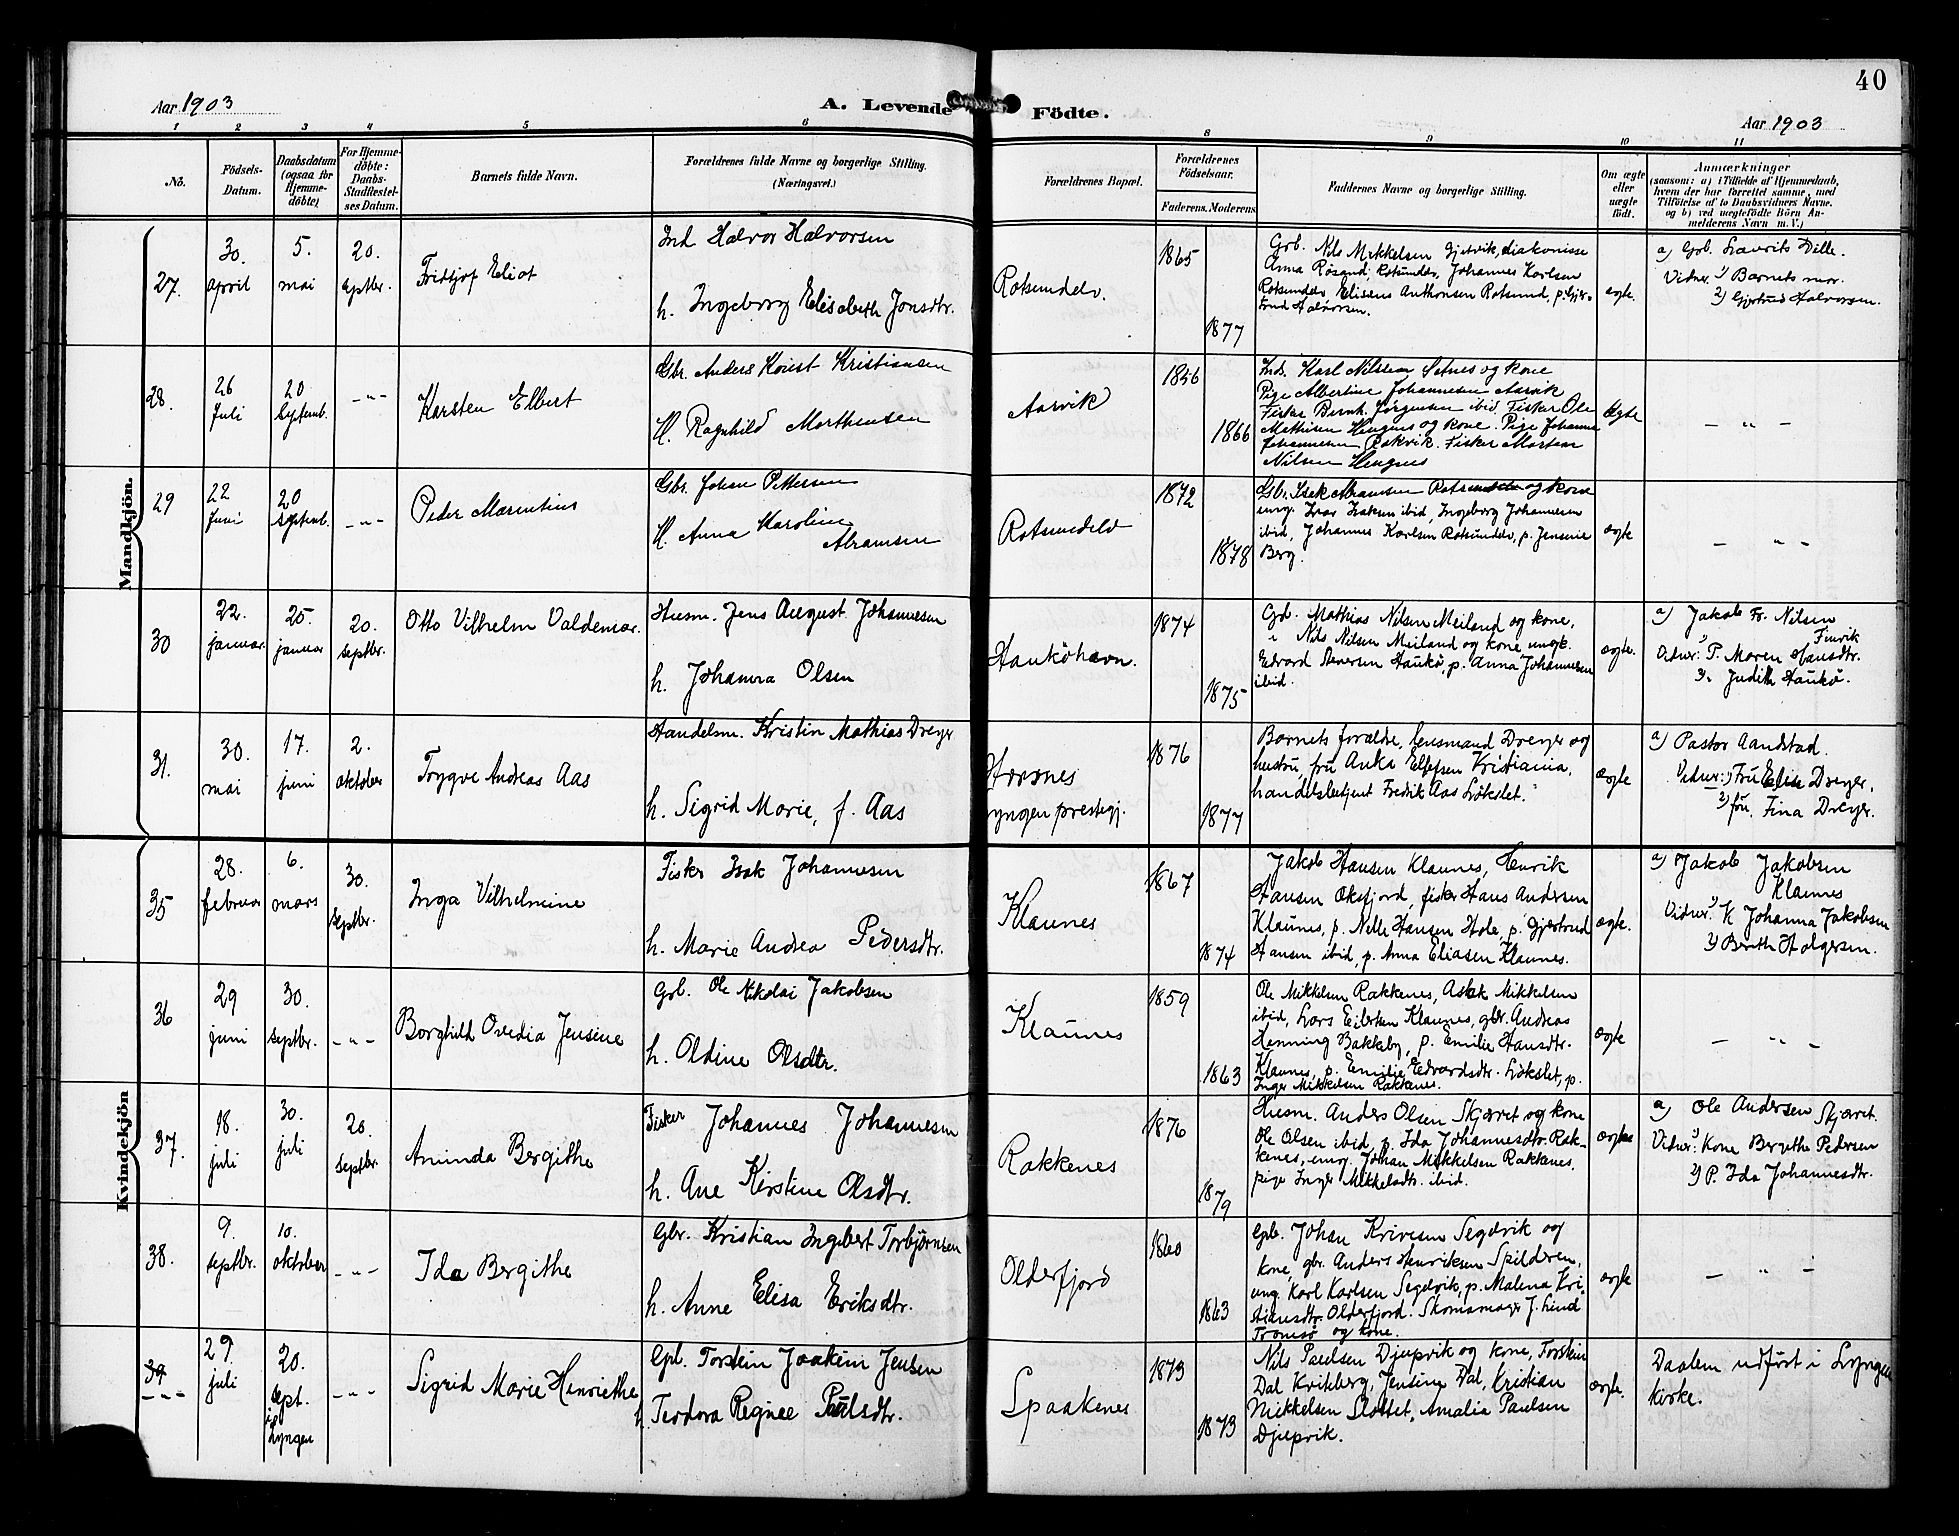 40
Aar 1903
A. Levende Födte.
Aar 1903
1 2 3 4 5 6 8 9 10 11
No.
Födsels-
Datum.
Daabsdatum
(ogsaa for
Hjemme-
döbte)
For Hjemme-
döbte:
Daabs-
Stadfestel-
ses Datum.
Barnets fulde Navn.
Forældrenes fulde Navne og borgerlige Stilling.
(Næringsvei.)
Forældrenes Bopæl.
Forældrenes
Födselsaar.
Faderens. Moderens
Faddernes Navne og borgerlige Stilling.
Om ægte
eller
uægte
födt.
Anmærkninger
(saasom: a) i Tilfælde af Hjemmedaab,
hvem der har forrettet samme, med
Tilföielse af to Daabsvidners Navne.
og b) ved uægtefödte Börn An-
melderens Navn m. V.)
Mandkjön.
27.
30.
april
5.
mai
20.
septbr.
Fridtjof Eliot
Ind Halvor Halvorsen
h. Ingeborg Elisabeth Jonsdtr.
Rotsundelv.
1865
1877
Grb. Nils Mikkelsen Gjetvik, diakonisse
Anna Røsand, Rotsundelv, Johannes Karlsen
Rotsundelv Eliseus Anthonsen Rotsund, p. Gjer-
trud Halvorsen.
ægte.
a) Grb. Lavrits Dille.
Vidner 1) Barnets mor.
2) Gjertrud Halvorsen.
28.
26
Juli
20
Septemb.
- " -
Karsten Elbert
Gbr. Anders Konst Kristiansen
H. Ragnhild Marthinsen
Aarvik
1856
1866
Inds. Karl Nilsen Setnes og kone
Pige Albertine Johannesen Aarvik
Fisker Bernh. Jørgensen ibid, Fisker Ole
Mathisen Hengnes og kone. Pige Johanna
Johannesen Rakvik. Fisker Morten
Nilsen Hengnes
Ægte
- " -
29
22
Juni
20
Septemb.
- " -
Peder Marentius
Gbr. Johan Pettersen
H. Anna Karoline
Abramsen
Rotsundelv
1872
1878
Gbr. Isak Abramsen Rotsundelv og kone
ung. Ivar Isaksen ibid, Ingeborg Johannesen
ibid, Johannes Karlsen Rotsundelv, p. Jensine
Berg.
ægte
- " -
30
22.
januar.
25.
januar
20.
septbr.
Otto Vilhelm Valdemar.
Husm. Jens August Johannesen
h. Johanna Olsen
Haukøhavn.
1874
1875
Grb. Mathias Nilsen Meiland og kone,
" Nils Nilsen Meiland og kone ungk.
Edvard Severen Haukø, p. Anna Johannesen
ibid.
ægte.
a) Jakob Fr. Nilsen
Finvik
Vidner: 1) P. Maren Hansdtr.
2) Judith Haukø.
31.
30.
mai
17.
juni
2.
oktober
Trygve Andreas Aas
Handelsm. Kristin Mathias Dreyer
h. Sigrid Marie, f. Aas
Havnes
Lyngen prestegj.
1876
1877
Barnets forældre, lensmand Dreyer og
hustru, fru Anka Elefsen Kristiania,
handelsbetjent Fredrik Aas Løkslet.
ægte
a) Pastor Aandstad.
Vidner: 1) Fru Elise Dreyer,
2) frü. Fina Dreyer.
Kvindekjön
35
28.
februar
6.
mars
30.
septbr.
Inga Vilhelmine
Fisker Isak Johannesen
h. Marie Andrea Pedersdtr.
Klaunes
1867
1874
Jakob Hansen Klaunes, Henrik
Hansen Oksfjord, fisker Hans Andersen
Klaunes, p. Nelle Hansen Hole, p. Gjertrud
Hansen ibid, p. Anna Eliasen Klaunes.
ægte.
a) Jakob Jakobsen
Klaunes
Vidner: 1) K. Johanna Jakobsen
2) Berith Holgersen.
36
29
juni
30.
septbr.
- " -
Borghild Ovedia Jensine
Grb. Ole Nikolai Jakobsen
h. Oldine Olsdtr.
Klaunes
1859
1863
Ole Mikkelsen Rakkenes, Aslak Mikkelsen
ibid, Lars Eilertsen Klaunes, gbr. Andreas
Henning Bakkeby, p. Emilie Hansdtr.
Klaunes, p. Emilie Edvardsdtr. Løkslet, p.
Inger Mikkelsen Rakkenes.
ægte
- " -
37.
18.
juli
30.
juli
20.
septbr.
Aminda Bergithe
Fisker Johannes Johannesen
h. Ane Kirstine Olsdtr.
Rakkenes
1876
1879
Husm. Anders Olsen Skjæret og kone
Ole Olsen ibid, p. Ida Johannesdtr. Rak-
kenes, ung. Johan Mikkelsen Rakkenes,
pige Inger Mikkelsdtr. ibid.
ægte
a) Ole Andersen Skjæret.
Vidner: 1) Kone Bergithe Pedersen
2) P. Ida Johannesdtr.
38.
9.
septbr.
10.
oktober
- " -
Ida Bergithe
Gbr. Kristian Ingebert Torbjørnsen
h. Anne Elisa Eriksdtr.
Olderfjord
1860
1863
Gpb. Johan Krivesen Segelvik og
kone, gbr. Anders Henriksen Spilderen,
ung. Karl Karlsen Segelvik, p. Malena Kri-
stiansdtr. Olderfjord. Skomamager J. Lind
Tromsø og kone.
ægte
- " -
39
- " -
29.
juli
20.
sept.
i
Lyngen
- " -
Sigrid Marie Henriethe
Gpb. Torstein Joakim Jensen
h. Teodora Regnee Paulsdtr.
Spaakenes
1873
1873
Nils Paulsen Djupvik og kone, Torstein
Dal Kvitberg, Jensine Dal, Kristian
Mikkelsen Slottet, Amalia Paulsen
Djupvik.
ægte.
Daaben udført i Lyngen
kirke.